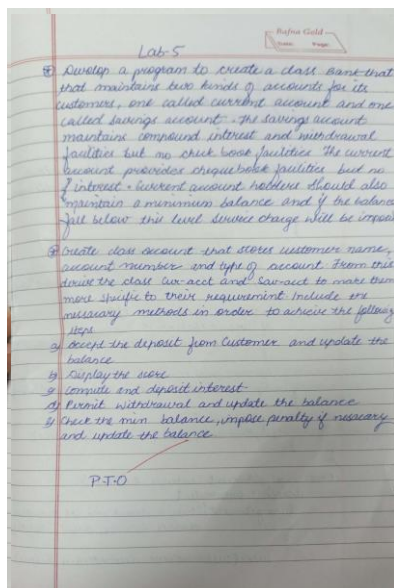 Rajna Gold
Date: Page:
Lab-5
Develop a program to create a class Bank that
that maintains two kinds of accounts for its
customers, one called current account and one
called savings account. The savings account
maintains compound interest and withdrawal
facilities but no check book facilities The current
account provides chequebook facilities but no
interest. Current account holders should also
maintain a minimum balance and if the balance
fall below this level service charge will be impos
Create class account that stores customer name,
account number and type of account From this
derive the class Cur-acct and Sav-acct to make them
more specific to their requirement Include the
nessicary methods in order to achieve the following
steps
a) Accept the deposit from Customer and update the
balance
b) Display the score
c) compute and deposit interest
d) Permit withdrawal and update the balance
e) Check the min balance, impose penalty if nessicary
and update the balance
P.T.O